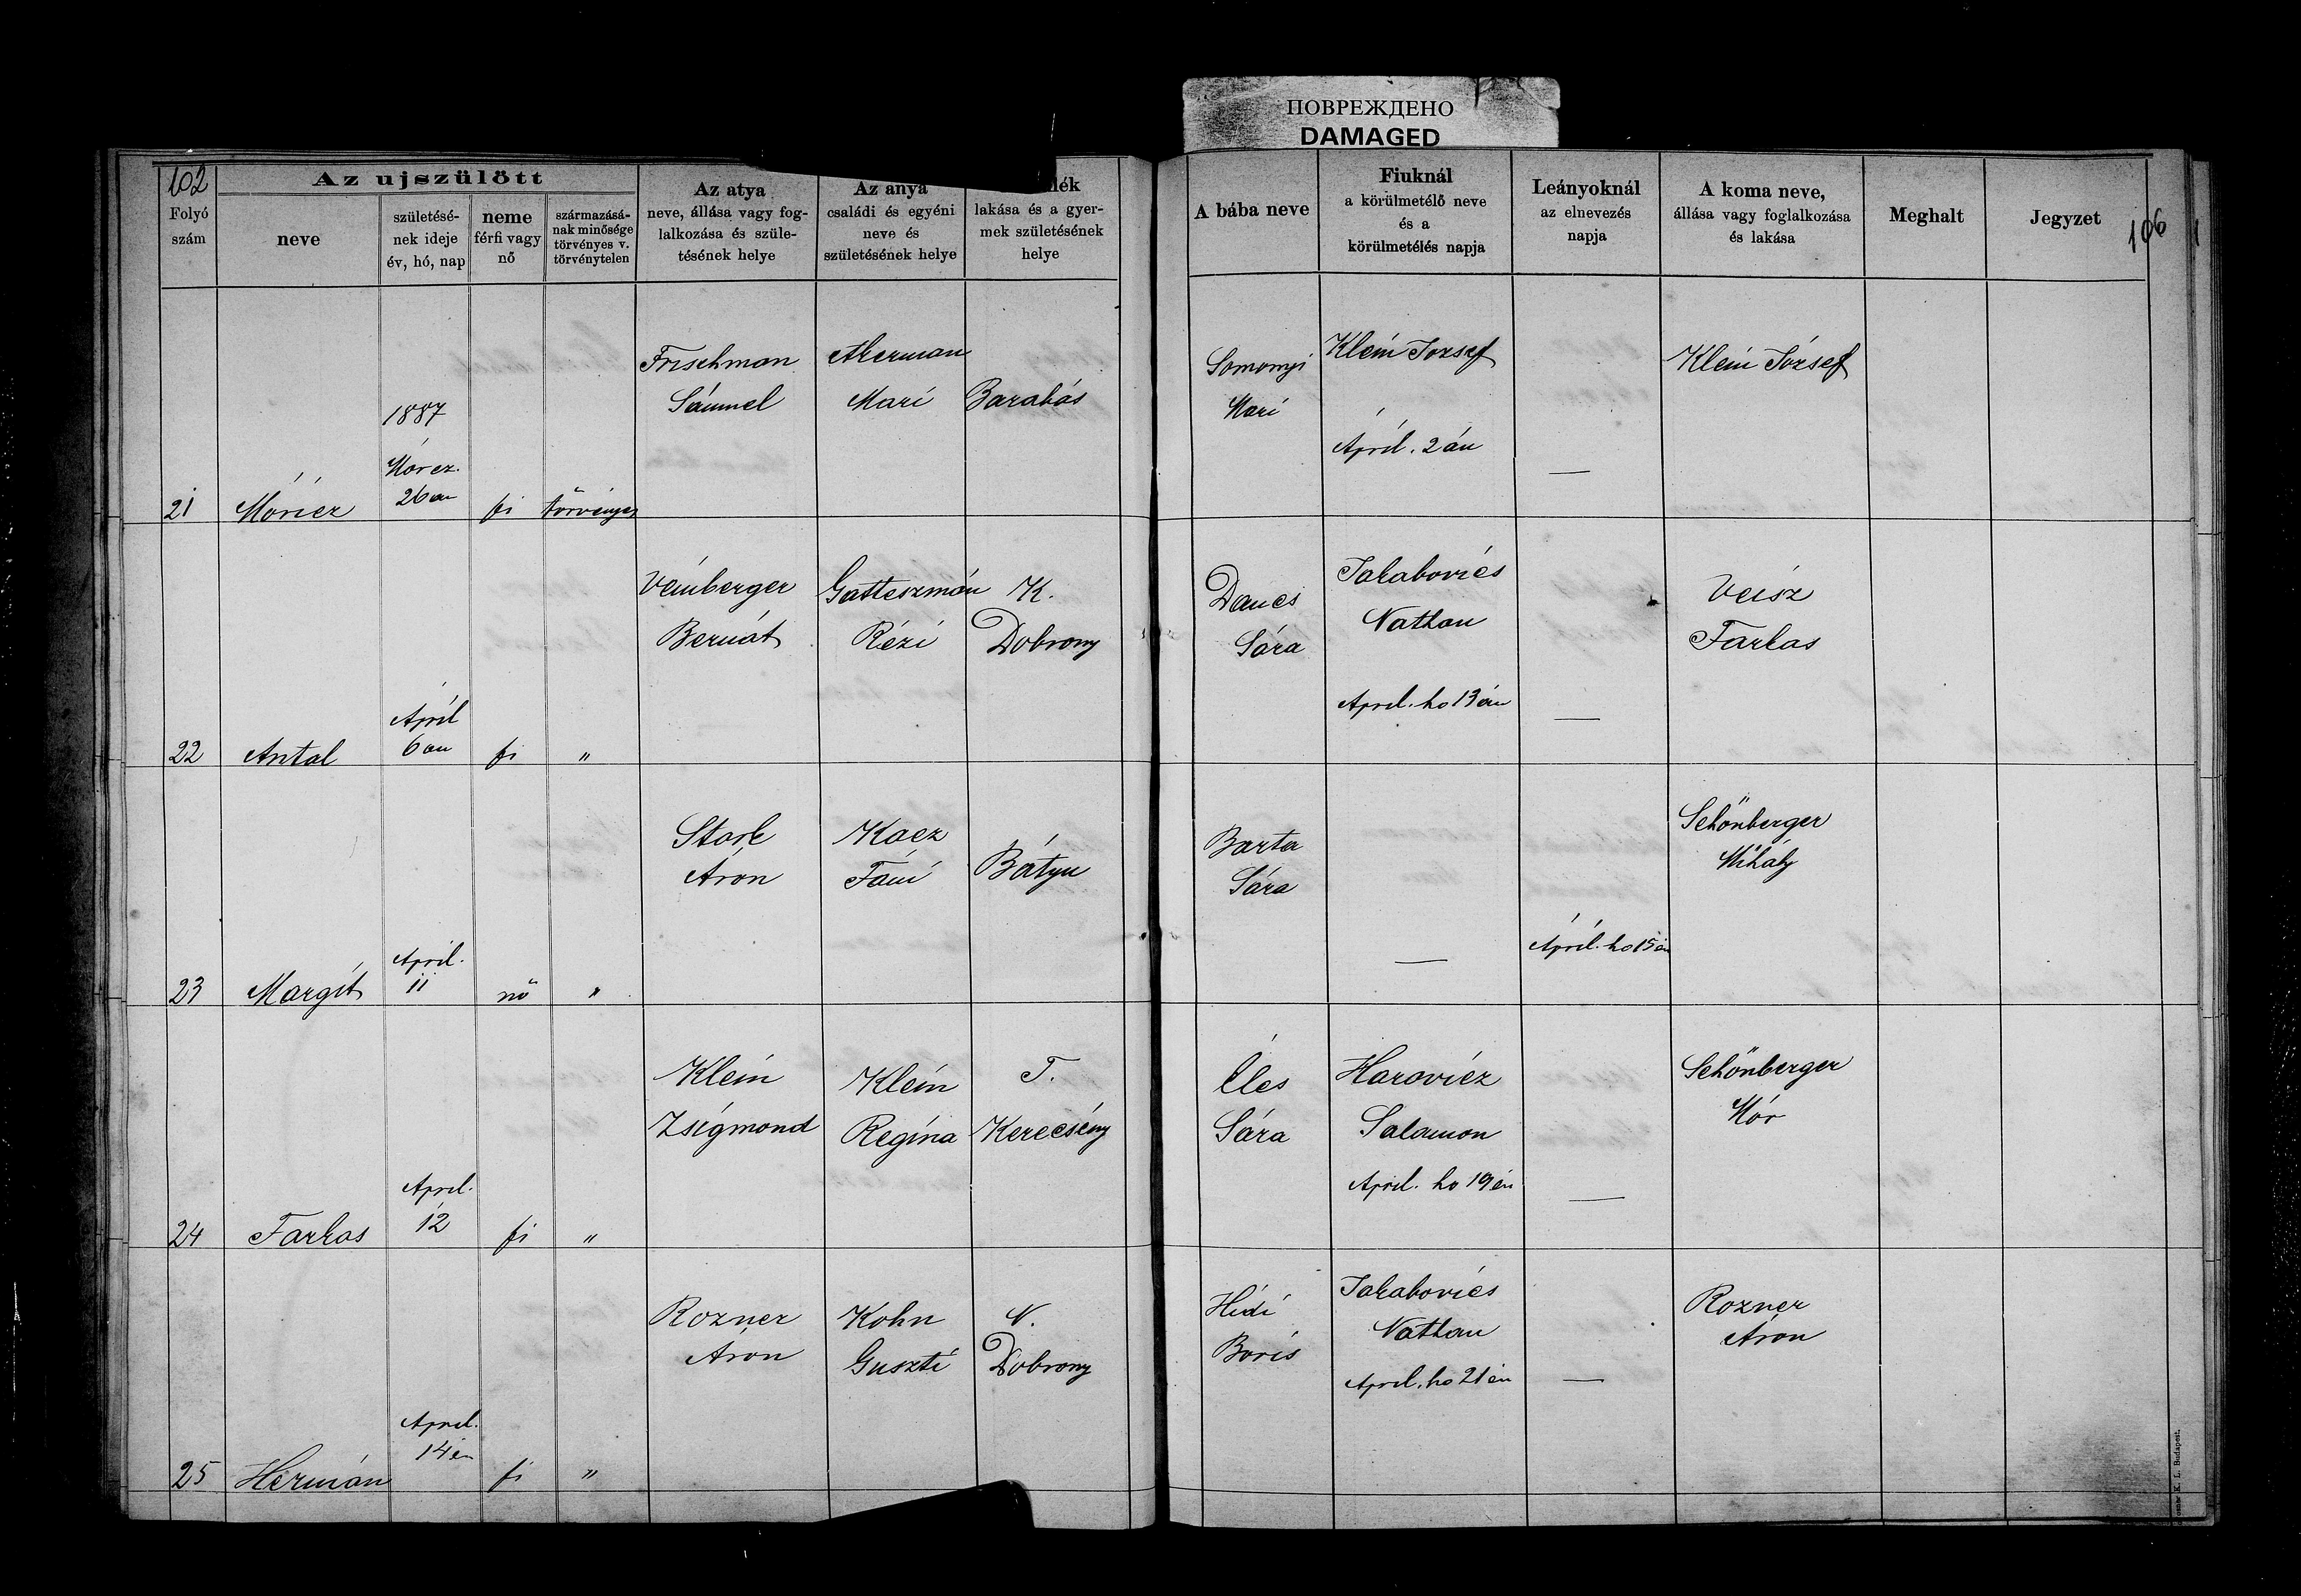 ПОВРЕЖДЕНО
DAMAGED
102
Az ujszülött
Folyó
szám
neve
születésé-
nek ideje
év, hó, nap
neme
férfi vagy
nő
származásá-
nak minősége
törvényes v.
törvénytelen
Az atya
neve, állása vagy fog-
lalkozása és szüle-
tésének helye
Az anya
családi és egyéni
neve és
születésének helye
lék
lakása és a gyer-
mek születésének
helye
A bába neve
Fiuknál
a körülmetélő neve
és a
körülmetélés napja
Leányoknál
az elnevezés
napja
A koma neve,
állása vagy foglalkozása
és lakása
Meghalt
Jegyzet
106
21
Móricz
1887
Márcz.
26 án
fi
törvényes
Frischman
Sámuel
Akerman
Mari
Barabás
Somonyi
Mari
Klein Jozsef
Ápril. 2 án
—
Klein József
22
Antal
April
6 án
fi
"
Veinberger
Bernát
Gatteszmán
Rézi
K.
Dobrony
Dancs
Sára
Jakabovics
Nathan
April. ho 13 án
—
Veisz
Farkas
23
Margit
April.
11
nő
"
Stark
Áron
Kacz
Fáni
Bátyu
Barta
Sára
—
Ápril. ho 15 én
Schönberger
Mihály
24
Farkas
April.
12
fi
"
Klein
Zsigmond
Klein
Regina
T.
Kerecsény
Illes
Sára
Harovicz
Salamon
April. ho 19 én
—
Schönberger
Mór
25
Hermán
April.
14 én
fi
"
Rozner
Áron
Kohn
Guszti
N.
Dobrony
Hidi
Boris
Jakabovics
Nathan
April. ho 21 én
—
Rozner
Áron
K. L. Budapest.